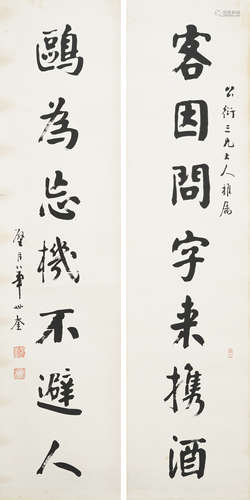 公衍三兄大人雅属
客因問字来携酒
鷗為忘機不避人
璧臣華世奎